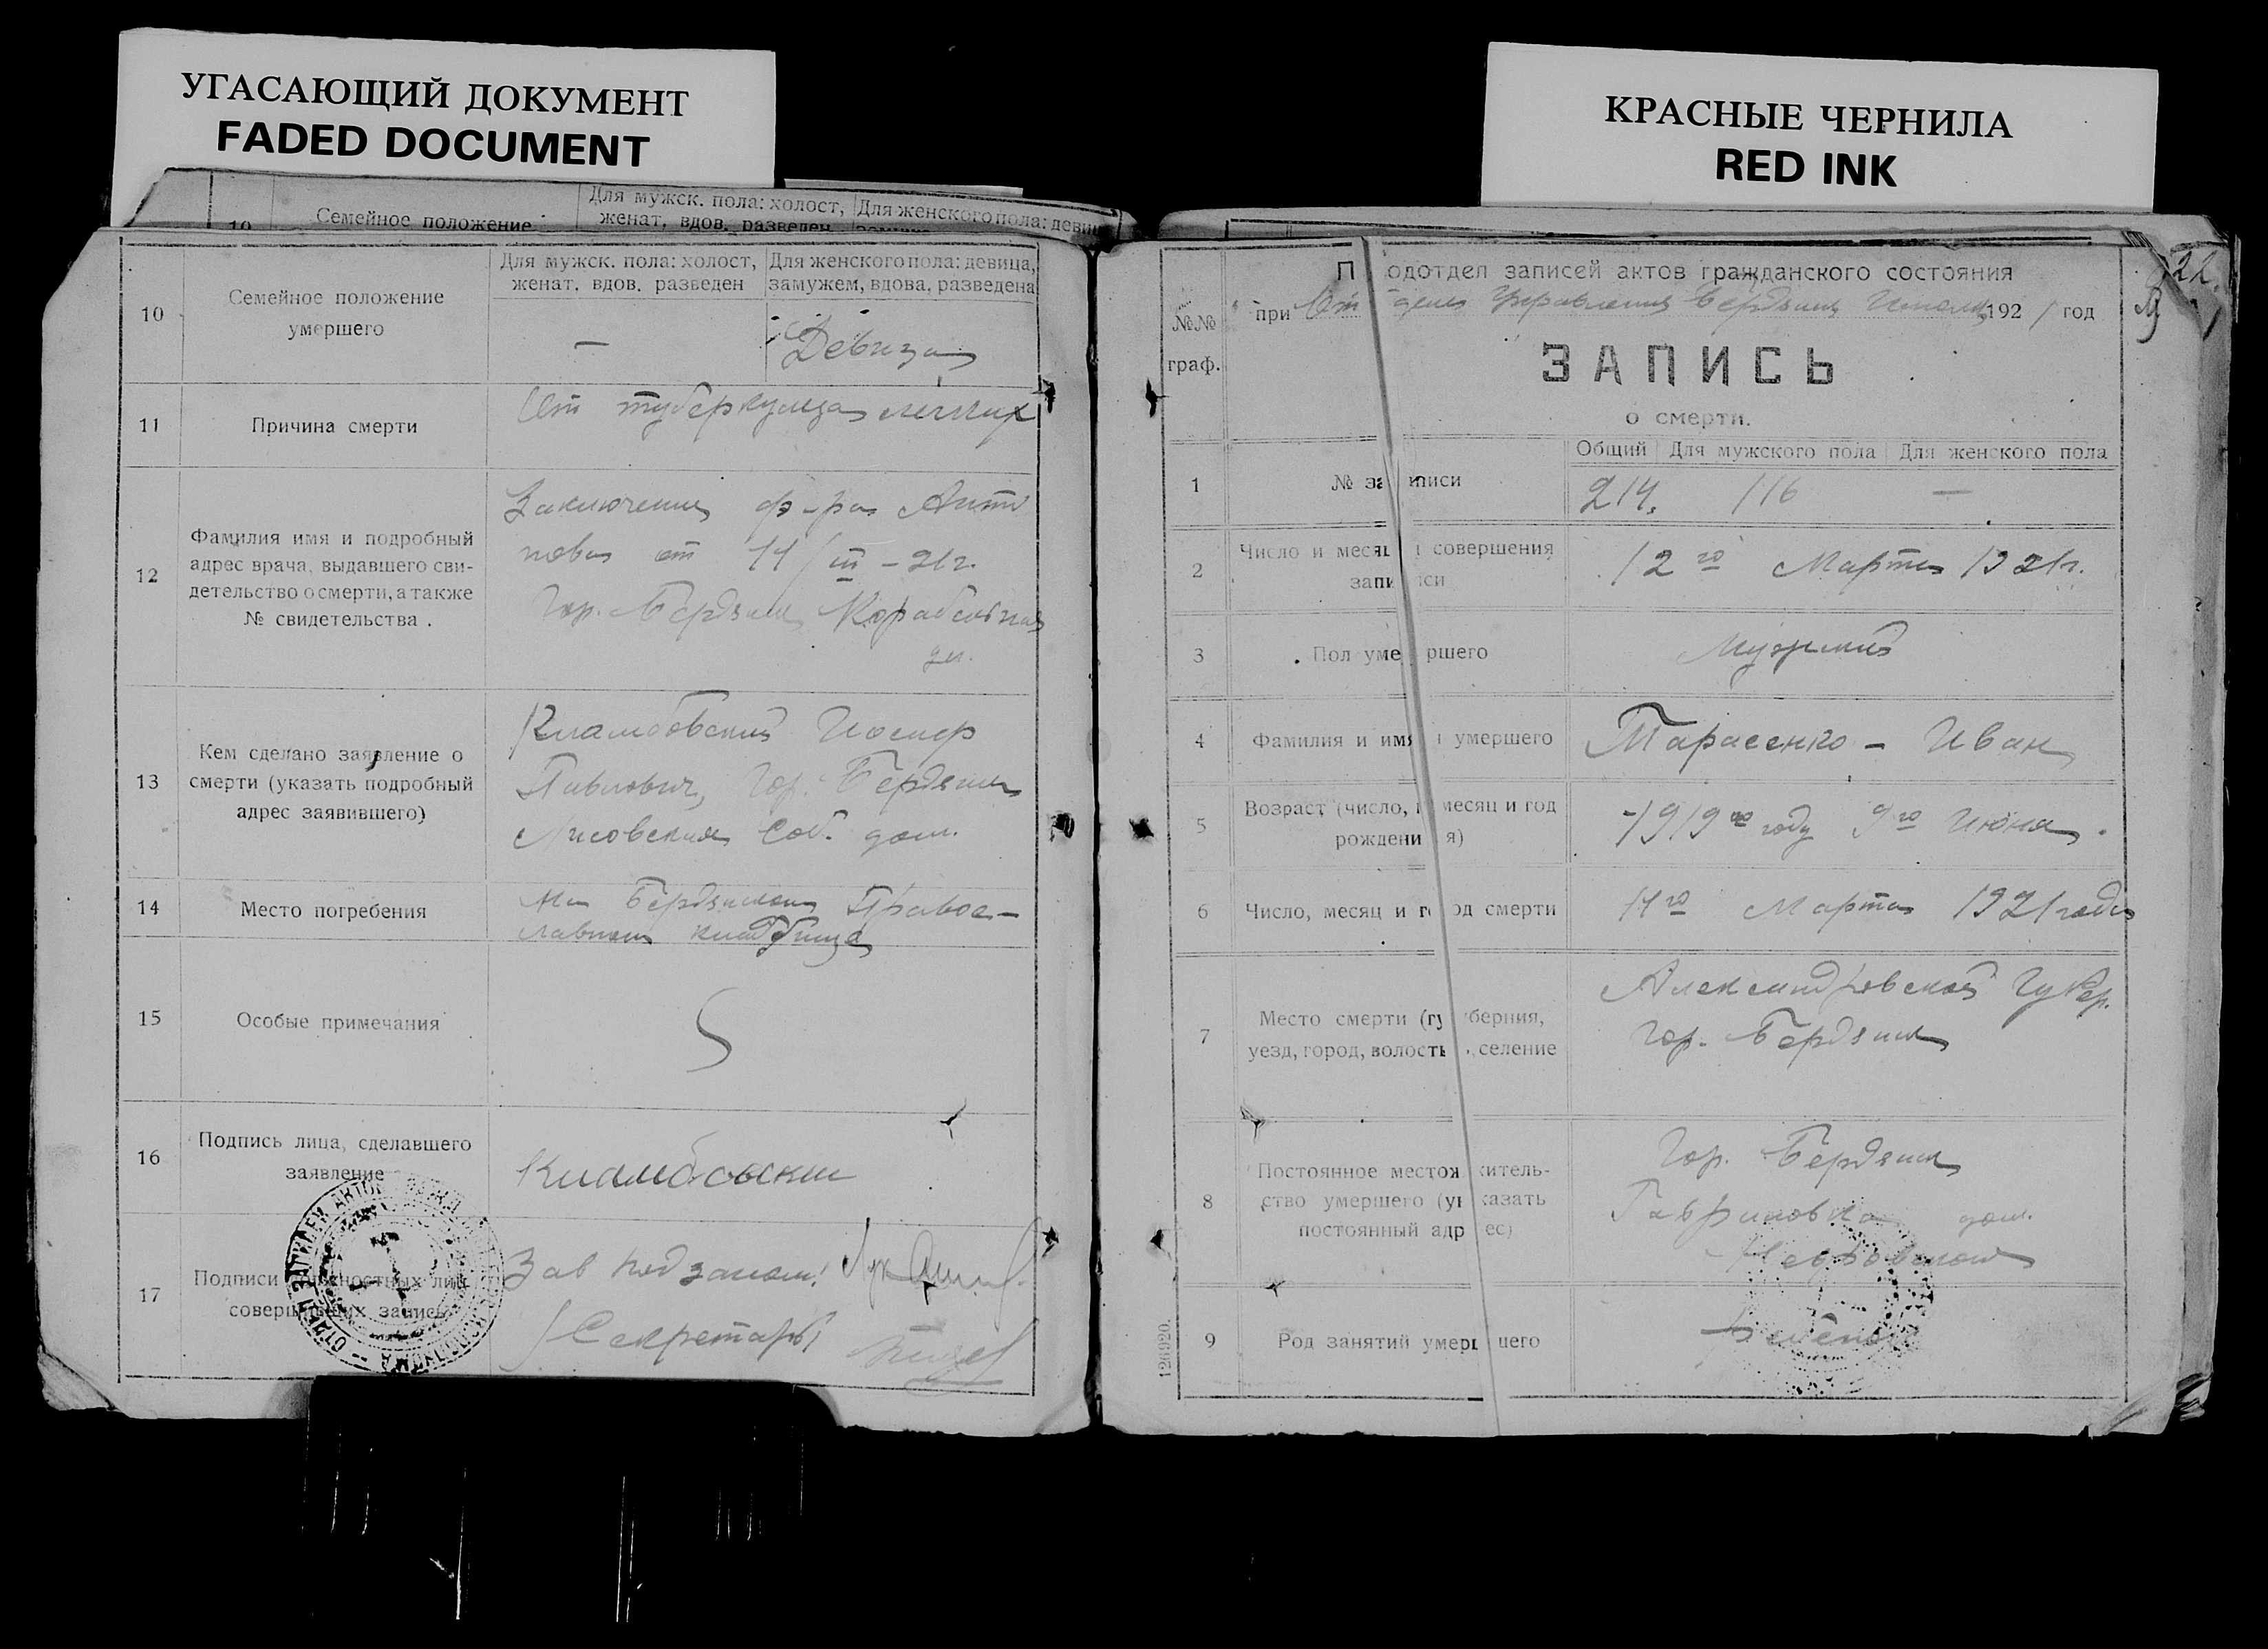 УГАСАЮЩИЙ ДОКУМЕНТ
FADED DOCUMENT
10 Семейное положение
Для мужск. пола: холост, женат, вдов. разведен
Для женского пола: девица,
10
Семейное положение
умершего
Для мужск. пола: холост,
женат, вдов. разведен
—
Для женского пола: девица,
замужем, вдова, разведена
Девица
11
Причина смерти
От туберкулеза легких
12
Фамилия имя и подробный
адрес врача, выдавшего сви-
детельство о смерти, а также
№ свидетельства .
Заключение ф-ра Анти
пова от 11/III-21г.
Гор. Бердянск Корабельная
ул.
13
Кем сделано заявление о
смерти (указать подробный
адрес заявившего)
Иосиф
Павлович, Гор. Бердянск
Лисовская Соб. дом.
14
Место погребения
На Бердянском Правос-
лавном кладбище
15
Особые примечания
16
Подпись лица, сделавшего
заявление
17
Подписи должностных лиц
совершивших запись
Зав подзагсом
Секретарь
КРАСНЫЕ ЧЕРНИЛА
RED INK
22.
№№
граф.
Пододотдел записей актов гражданского состояния
при Отдела Управления Бердянск 1921 год
ЗАПИСЬ
о смерти.
1
№ записи
Общий Для мужского пола Для женского пола
214. 116 —
2
Число и месяц совершения
записи
12го Марта 1921г.
3
Пол умершего
Мужский
4
Фамилия и имя умершего
Тарасенко - Иван
5
Возраст (число, месяц и год
рождения)
1919го году 9го Июня.
6
Число, месяц и год смерти
11го Марта 1921 года
7
Место смерти (губерния,
уезд, город, волость, селение
Александровской Губер.
Гор. Бердянск
8
Постоянное местожитель-
ство умершего (указать
постоянный адрес)
Гор. Бердянск
дом.
9
Род занятий умершего
126920.